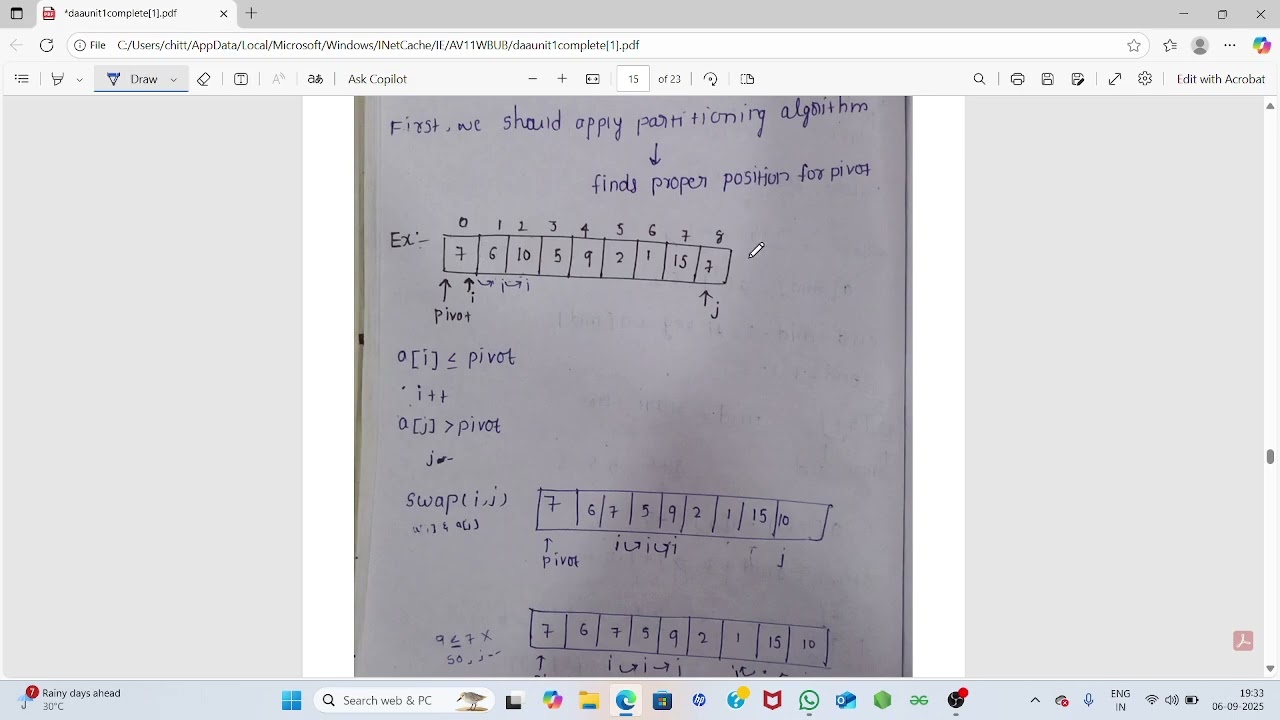 *daaunit1complete[1].pdf
File C:/Users/chitt/AppData/Local/Microsoft/Windows/INetCache/IE/AV11WBUB/daaunit1complete[1].pdf
Draw Ask Copilot 15 of 23 Edit with Acrobat
First, we should apply partitioning algorithm
↓
finds proper position for pivot
0 1 2 3 4 5 6 7 8
Ex:- 7 6 10 5 9 2 1 15 7
i i j
pivot j
a[i] ≤ pivot
i++
a[j] > pivot
j--
swap(i,j) 7 6 7 5 9 2 1 15 10
i i i j
pivot
7 6 7 5 9 2 1 15 10
9 ≤ 7 x
so, j--
7
Rainy days ahead
30°C
Search web & PC
ENG
IN
19:33
06-09-2025